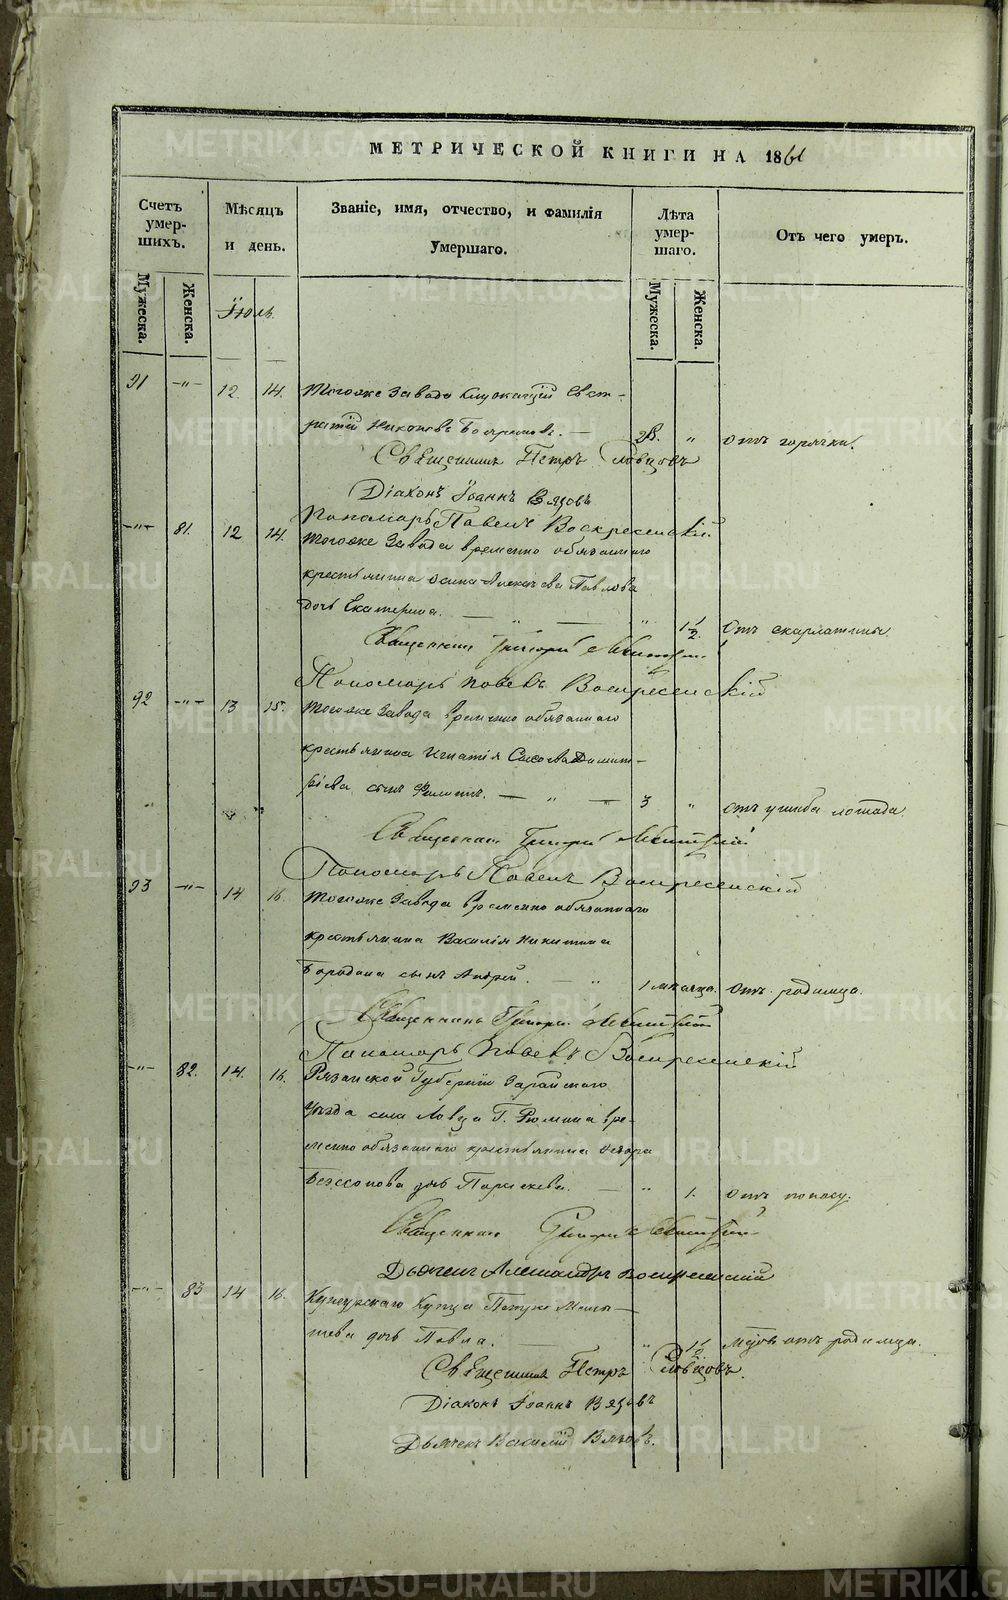 МЕТРИЧЕСКОЙ КНИГИ НА 1861
Счетъ умершихъ.
Мѣсяцъ и день.
Званіе, имя, отчество, и фамилія Умершаго.
Лѣта умершаго.
Отъ чего умеръ.
Мужеска.
Женска.
Іюль.
Мужеска.
Женска.
91 -"- 12. 14. Тогоже Завода Служащій Евст-
ратій Никоновъ " отъ горячки.
Священникъ Петръ Словцовъ
Діаконъ Іоаннъ Вязовъ
Пономарь Павелъ Воскресенскій.
-"- 81. 12 14. Тогоже Завода временно обязаннаго
крестьянина Осипа Павлова
дочь Екатерина. — " — " 1½. Отъ скарлатины.
Священникъ Григорій
Пономарь Павелъ Воскресенскій
92 -"- 13 15. Тогоже Завода временно обязаннаго
крестьянина Игнатія Димит-
ріева сынъ Филиппъ. — " — 3 " отъ ушиба лошади.
Священникъ Григорій
Пономарь Павелъ Воскресенскій
93 -"- 14 16. Тогоже Завода временно обязаннаго
крестьянина Василія Никитина
Бородина сынъ Андрей. — " 1 мѣсяца. отъ родимца.
Священникъ Григорій
Пономарь Павелъ Воскресенскій
-"- 82. 14. 16. Рязанской Губерніи Зарайскаго
Уѣзда села Ловца Г. Рюмина вре-
менно обязаннаго крестьянина
Безсонова дочь Параскева. — " 1. отъ поносу.
Священникъ Григорій
Дьячекъ Александръ Воскресенскій
-"- 83 14 16. Кунгурскаго Купца Петра Малы-
шева дочь Павла. " 1½ отъ родимца.
Священникъ Петръ Словцовъ.
Діаконъ Іоаннъ Вязовъ
Дьячекъ Василій Вязовъ.
METRIKI.GASO-URAL.RU